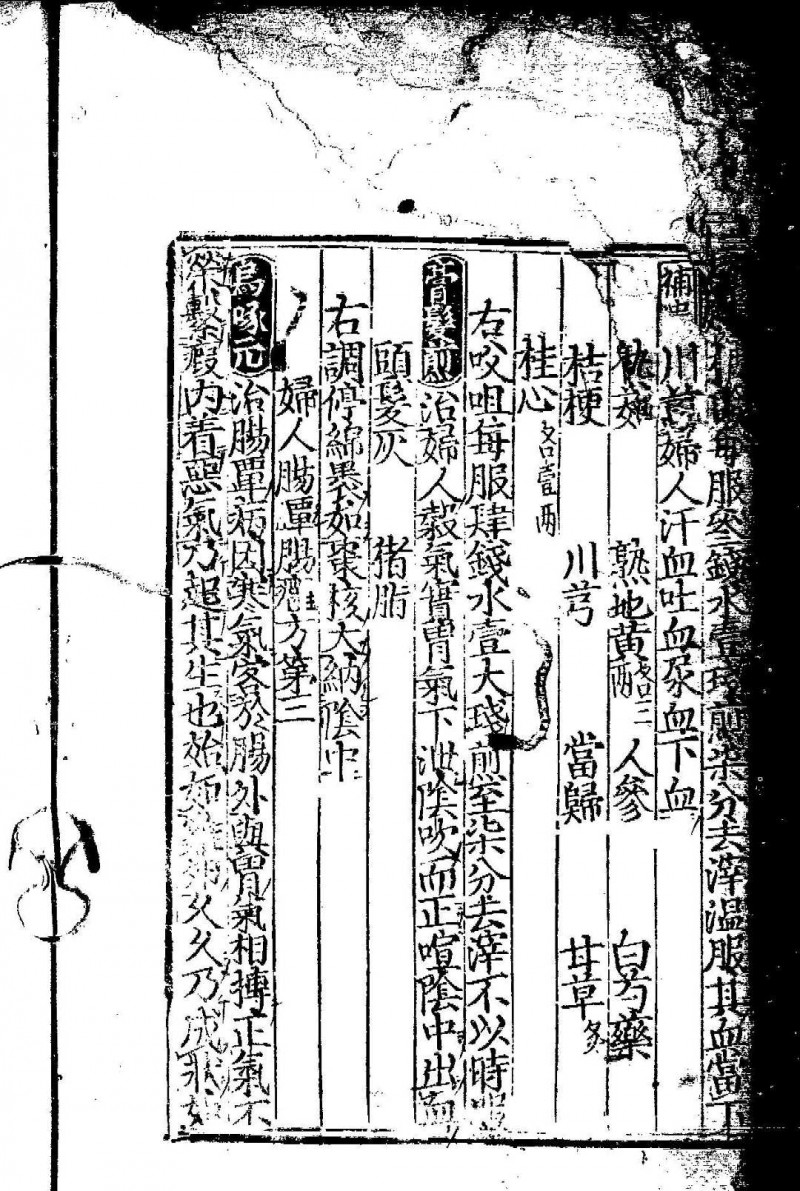 每服叁錢水壹琖煎柒分去滓溫服其血當下
補中川芎婦人汗血吐血尿血下血
熟地黃各二兩 人參 白芍藥
桔梗 川芎 當歸 甘草
桂心各壹兩
右㕮咀每服肆錢水壹大琖煎至柒分去滓不以時服
膏髮煎治婦人穀氣實胃氣下泄陰吹而正喧陰中出
頭髮灰 猪脂
右調停綿褁如棗核大納陰中
婦人腸覃腸方第三
烏喙丸治腸覃病因寒氣客於腸外與胃氣相摶正氣不
榮繫瘕內着惡氣乃起其生也始如雞卵久久乃成狀如